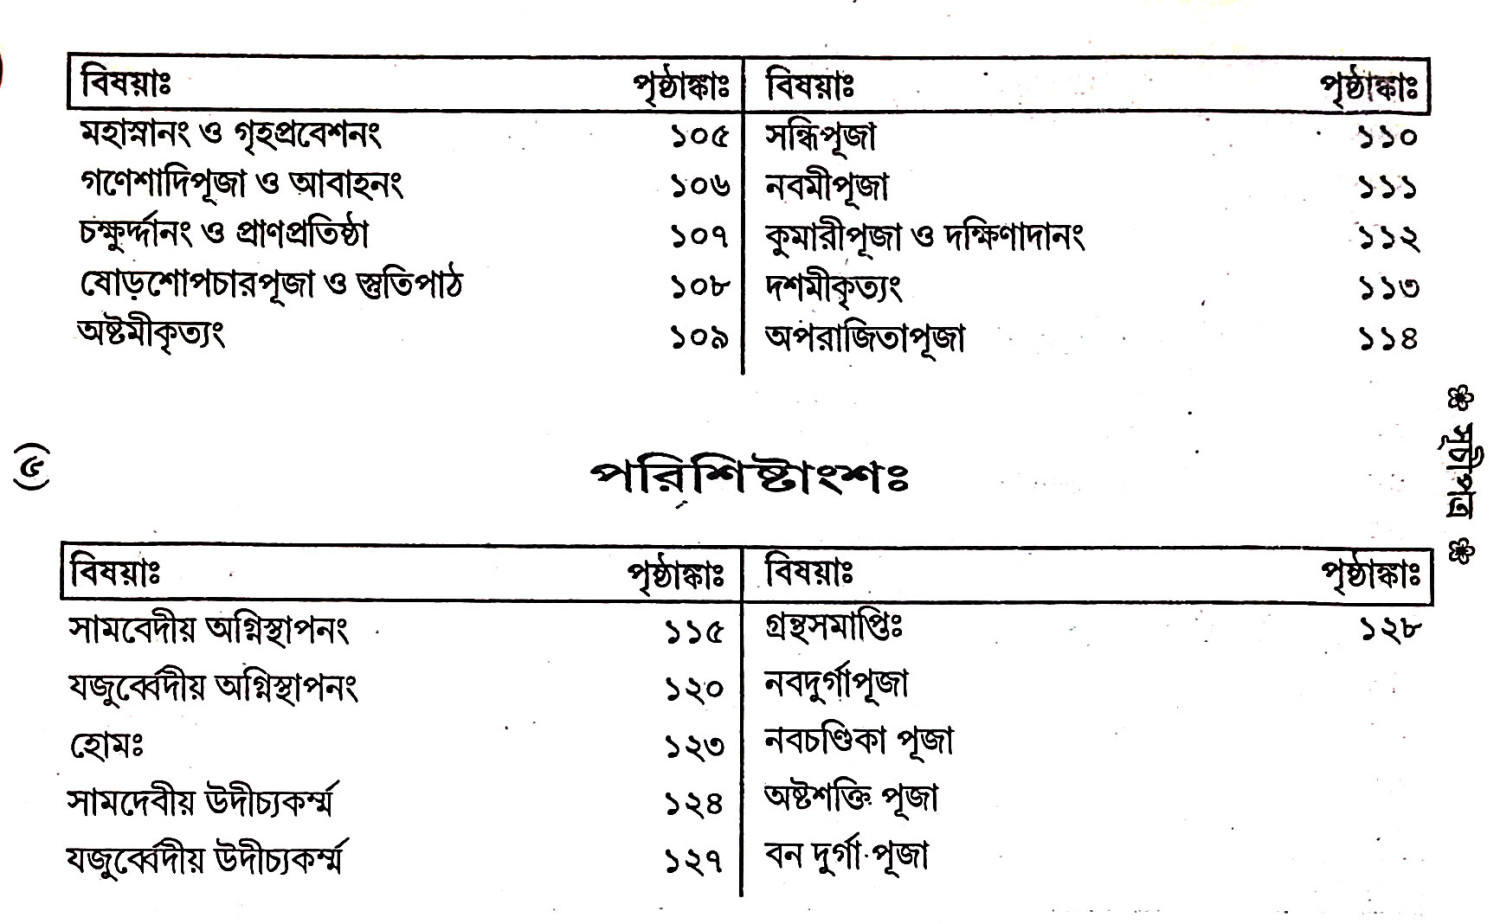 বিষয়াঃ পৃষ্ঠাঙ্কাঃ
মহাস্নানং ও গৃহপ্রবেশনং ১০৫
গণেশাদিপূজা ও আবাহনং ১০৬
চক্ষুর্দ্দানং ও প্রাণপ্রতিষ্ঠা ১০৭
ষোড়শোপচারপূজা ও স্তুতিপাঠ ১০৮
অষ্টমীকৃত্যং ১০৯
বিষয়াঃ পৃষ্ঠাঙ্কাঃ
সন্ধিপূজা ১১০
নবমীপূজা ১১১
কুমারীপূজা ও দক্ষিণাদানং ১১২
দশমীকৃত্যং ১১৩
অপরাজিতাপূজা ১১৪
পরিশিষ্টাংশঃ
বিষয়াঃ পৃষ্ঠাঙ্কাঃ
সামবেদীয় অগ্নিস্থাপনং ১১৫
যজুর্ব্বেদীয় অগ্নিস্থাপনং ১২০
হোমঃ ১২৩
সামদেবীয় উদীচ্যকর্ম্ম ১২৪
যজুর্ব্বেদীয় উদীচ্যকর্ম্ম ১২৭
বিষয়াঃ পৃষ্ঠাঙ্কাঃ
গ্রন্থসমাপ্তিঃ ১২৮
নবদুর্গাপূজা
নবচণ্ডিকা পূজা
অষ্টশক্তি পূজা
বন দুর্গা পূজা
(৫)
সূচীপত্র